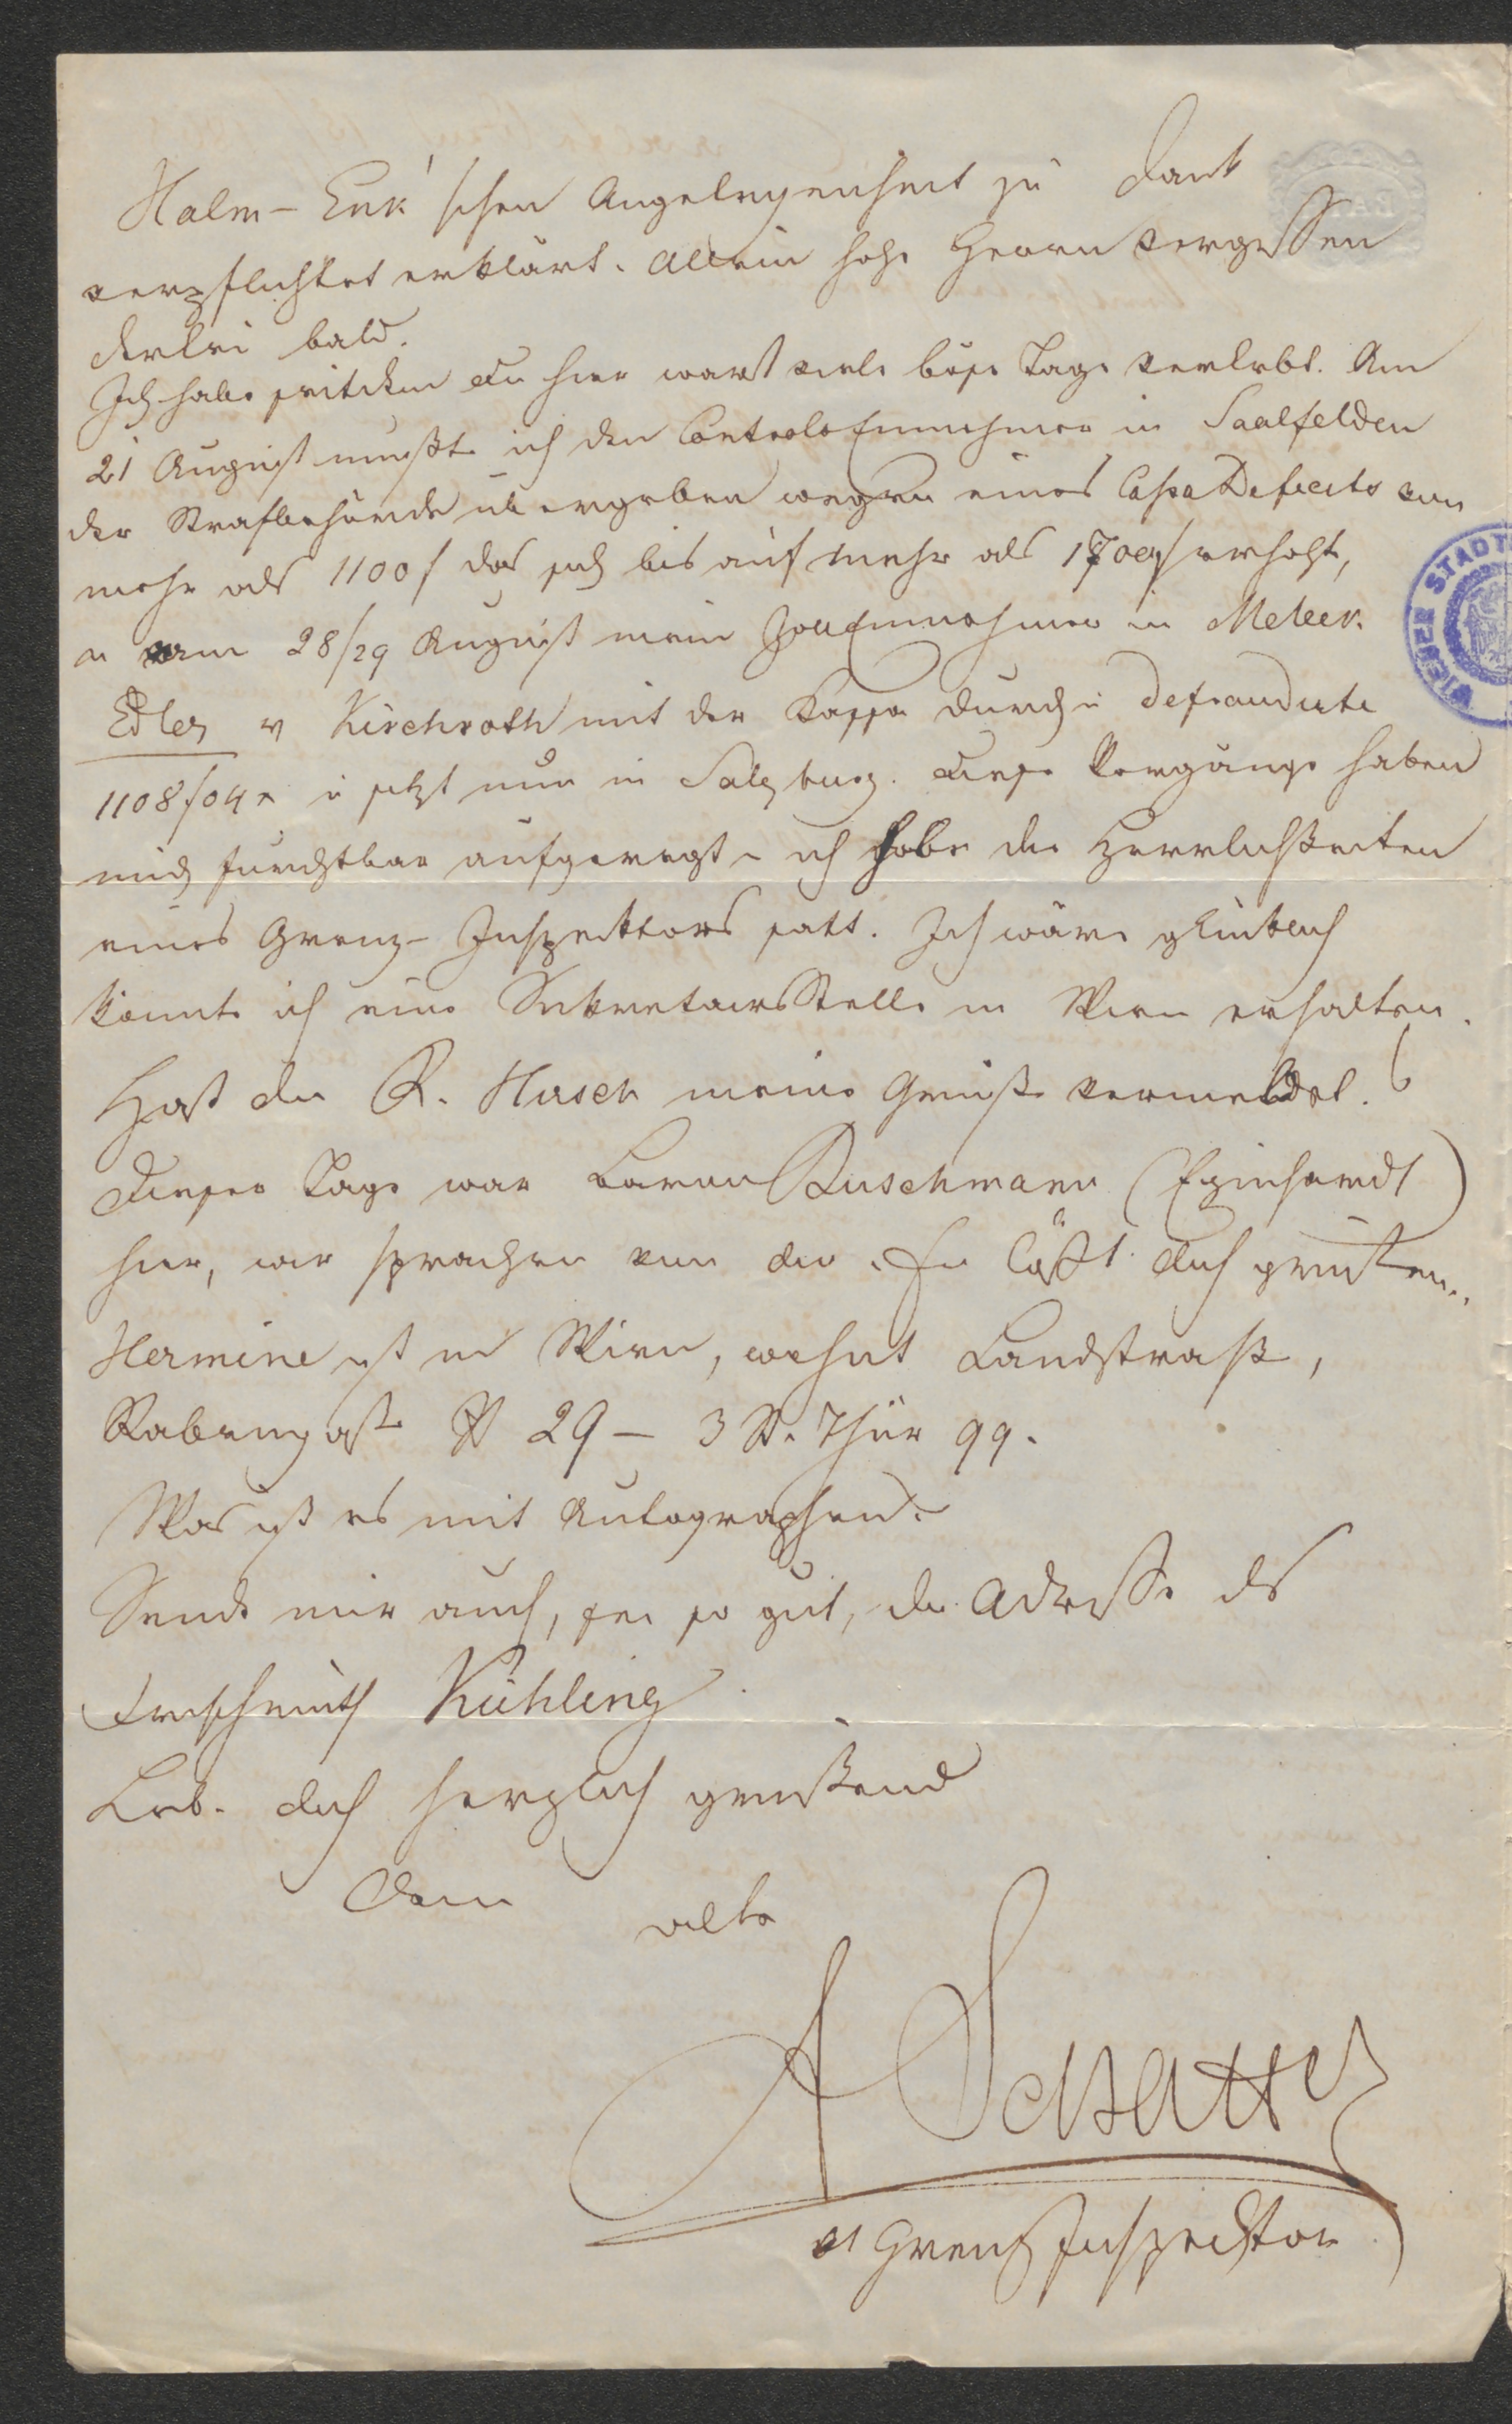 Halm-Enk'schen Angelegenheit zu Dank
verpflichtet erklärt. Allein hohe Herrn vergessen
derlei bald.
Ich habe seitdem Du hier warst viele böse Tage verlebt. Am
21 August mußte ich den Controls Einnehmer in Saalfelden
der Strafbehörde übergeben wegen eines Cassa Deficits von
mehr als 1100 f das sich bis auf mehr als 1700 f erhöht,
am 28/29 August mein Zolleinnehmer in Melleck
Edler v Kirchroth mit der Kassa durch u defraudirte
1108 f 04 x u sitzt nun in Salzburg. Diese Vorgänge haben
mich furchtbar aufgeregt u ich habe die Herrlichkeiten
eines Grenz-Inspecktors satt. Ich wäre glücklich
könnte ich eine Sekretairs Stelle in Wien erhalten.
Hast du R. Hirsch meine Grüße vermeldet.
Dieser Tage war Baron Buschmann (Eginhardt)
hier, wir sprachen von dir. Er läßt dich grüßen.
Hermine ist in Wien, wohnt Landstraße,
Rabengasse N 29 – 3 St. Thür 99.
Was ist es mit Autographen?
Sende mir auch, sei so gut, die Adresse des
Kühling
Leb. dich herzlich grüßend
Dein
alter
A Schatter
GrenzInspecktor
WIENER STADT